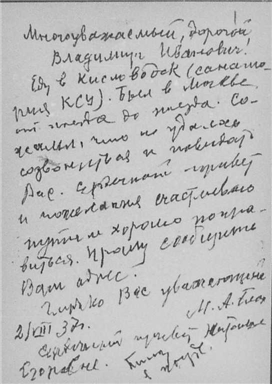 Многоуважаемый, дорогой
Владимир Иванович!
Еду в Кисловодск (санато-
рия КСУ). Был в Москве
от поезда до поезда. Со-
жалею, что не удалось
созвониться и повидать
Вас. Сердечный привет
и пожелания счастливого
пути и хорошо попра-
виться. Прошу сообщить
Ваш адрес.
Глубоко Вас уважающий
2/VIII 37г. М. А.
Сердечный привет Наталье
Егоровне.